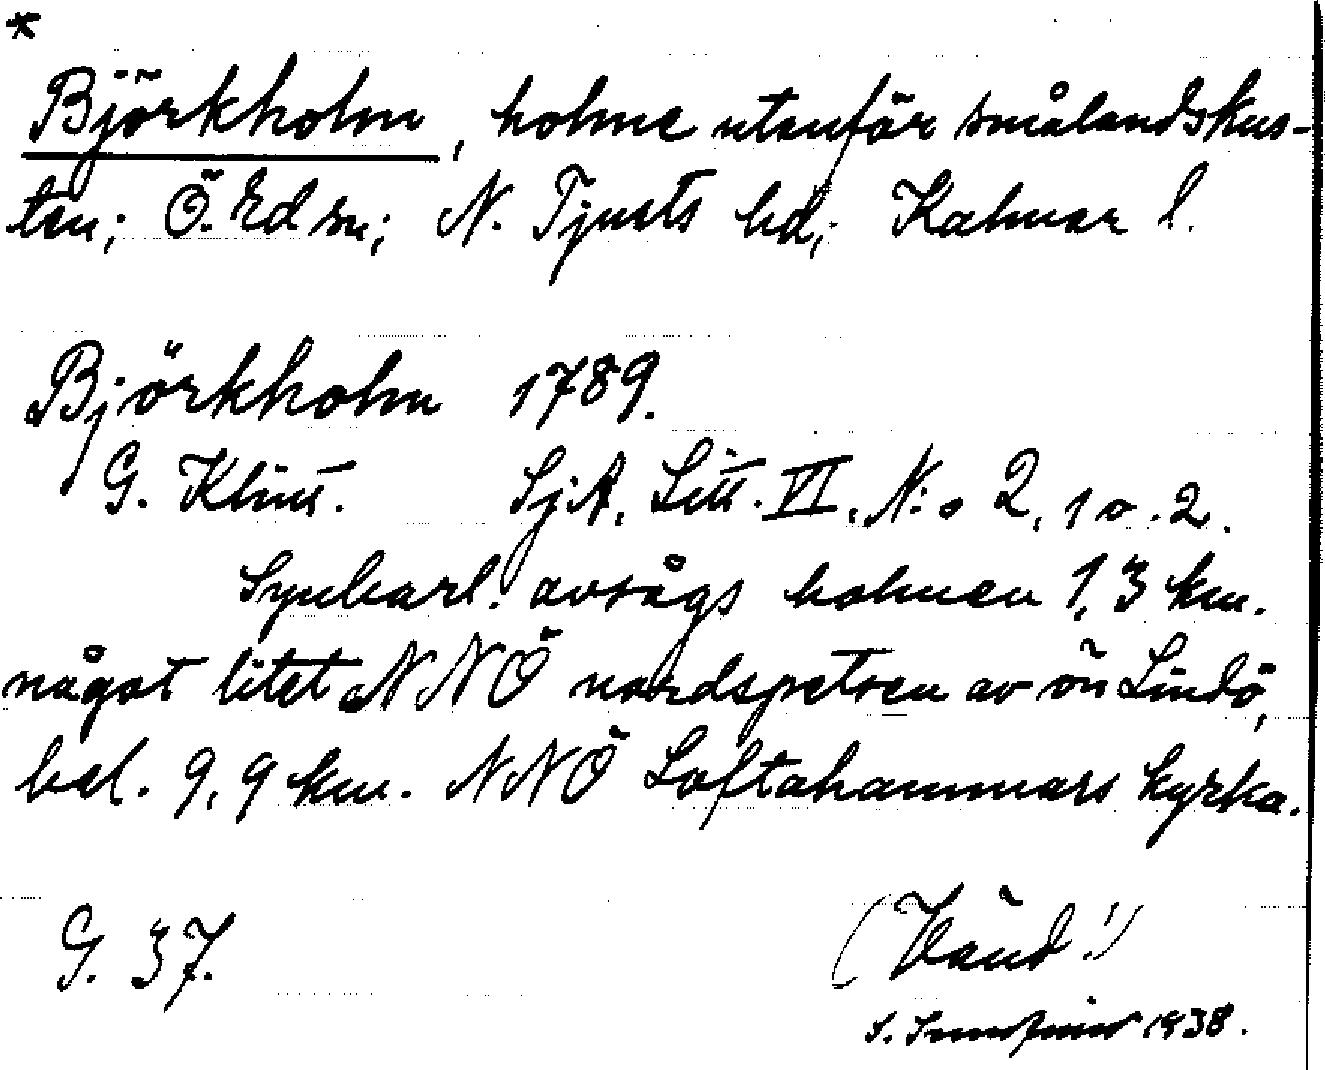 *
Björkholm, holme utanför smålandskus-
ten; Ö. Ed sn; N. Tjusts hd; Kalmar l.
Björkholm 1789.
G. Klint. SjA, Litt. VI, N:o 2, 1 o. 2.
Synbarl. avsågs holmen 1,3 km.
något litet NNÖ nordspetsen av ön Lindö,
bel. 9,9 km. NNÖ Loftahammars kyrka.
G. 37.
(Vänd!)
S. 1938.